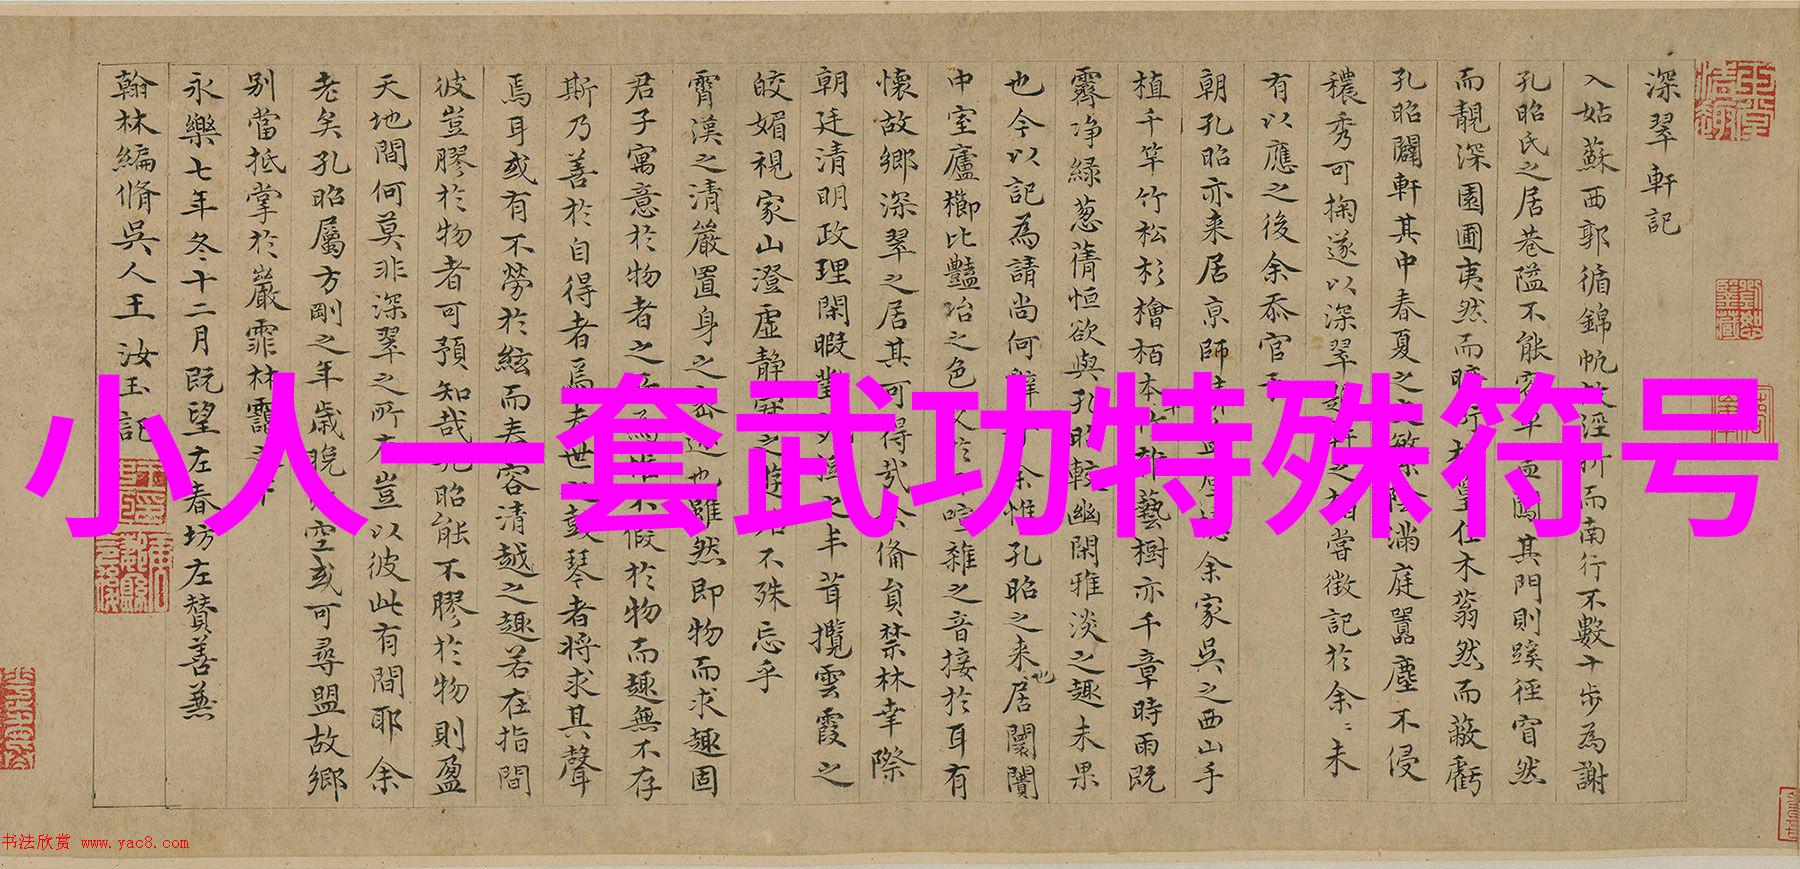 深翠軒記
入姑蘇西郭循錦帆涇折而南行不數十步為謝
孔昭氏之居巷隘不能容車直闖其門則蹊徑窅然
而靚深園圃夷然而曠竹木蓊然而蔽虧
孔昭闢軒其中春夏之交繁陰滿庭囂塵不侵
穠秀可掬遂以深翠嘗徵記於余余未
有以應之後余忝官
朝孔昭亦来居京師余家吳之西山手
植千竿竹松杉檜栢藝樹亦千章時雨既
霽净緑葱蒨恒欲與孔昭較幽閑雅淡之趣未果
也今以記為請尚何辭余惟孔昭之来居闤闠
中室廬櫛比豔冶之色喧雜之音接於耳有
懷故鄉深翠之居其可得哉備員禁林幸際
朝廷清明政理閑暇之丰茸攬雲霞之
皎媚視家山澄虚静之不殊忘乎
霄漢之清嚴置身之也雖然即物而求趣固
君子寓意於物者之不假於物而趣無不存
斯乃善於自得者焉夫世之鼓琴者将求其聲
焉耳或有不勞於絃而夫容清越之趣若在指間
彼豈膠於物者可預知哉孔昭能不膠於物則盈
天地間何莫非深翠之所豈以彼此有間耶余
老矣孔昭屬方剛之年歲晚空或可尋盟故鄉
别當抵掌於巖霏林靄之下
永樂七年冬十二月既望左春坊左贊善兼
翰林編脩吳人王汝玉記
小人一套武功特殊符号
书法欣赏 www.yac8.com